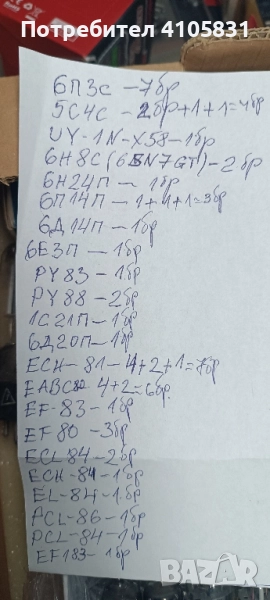 Потребител 4105831
6П3С – 7бр
5С4С – 2бр+1+1=4бр
UY-1N-X58-1бр
6Н8С (6SN7GT) – 2бр
6Н24П – 1бр
6П14П – 1+1+1=3бр
6Д14П – 1бр
6Е3П – 1бр
PY83 – 1бр
PY88 – 2бр
1С21П – 1бр
6Д20П – 1бр
ECH-81-4+2+1=7бр
EABC80 4+2=6бр.
EF-83-1бр
EF80-3бр
ECL84-2бр
ECH-84-1бр
EL-84-1.бр
PCL-86-1бр
PCL-84-1бр
EF183-1бр
BAZAR
bg